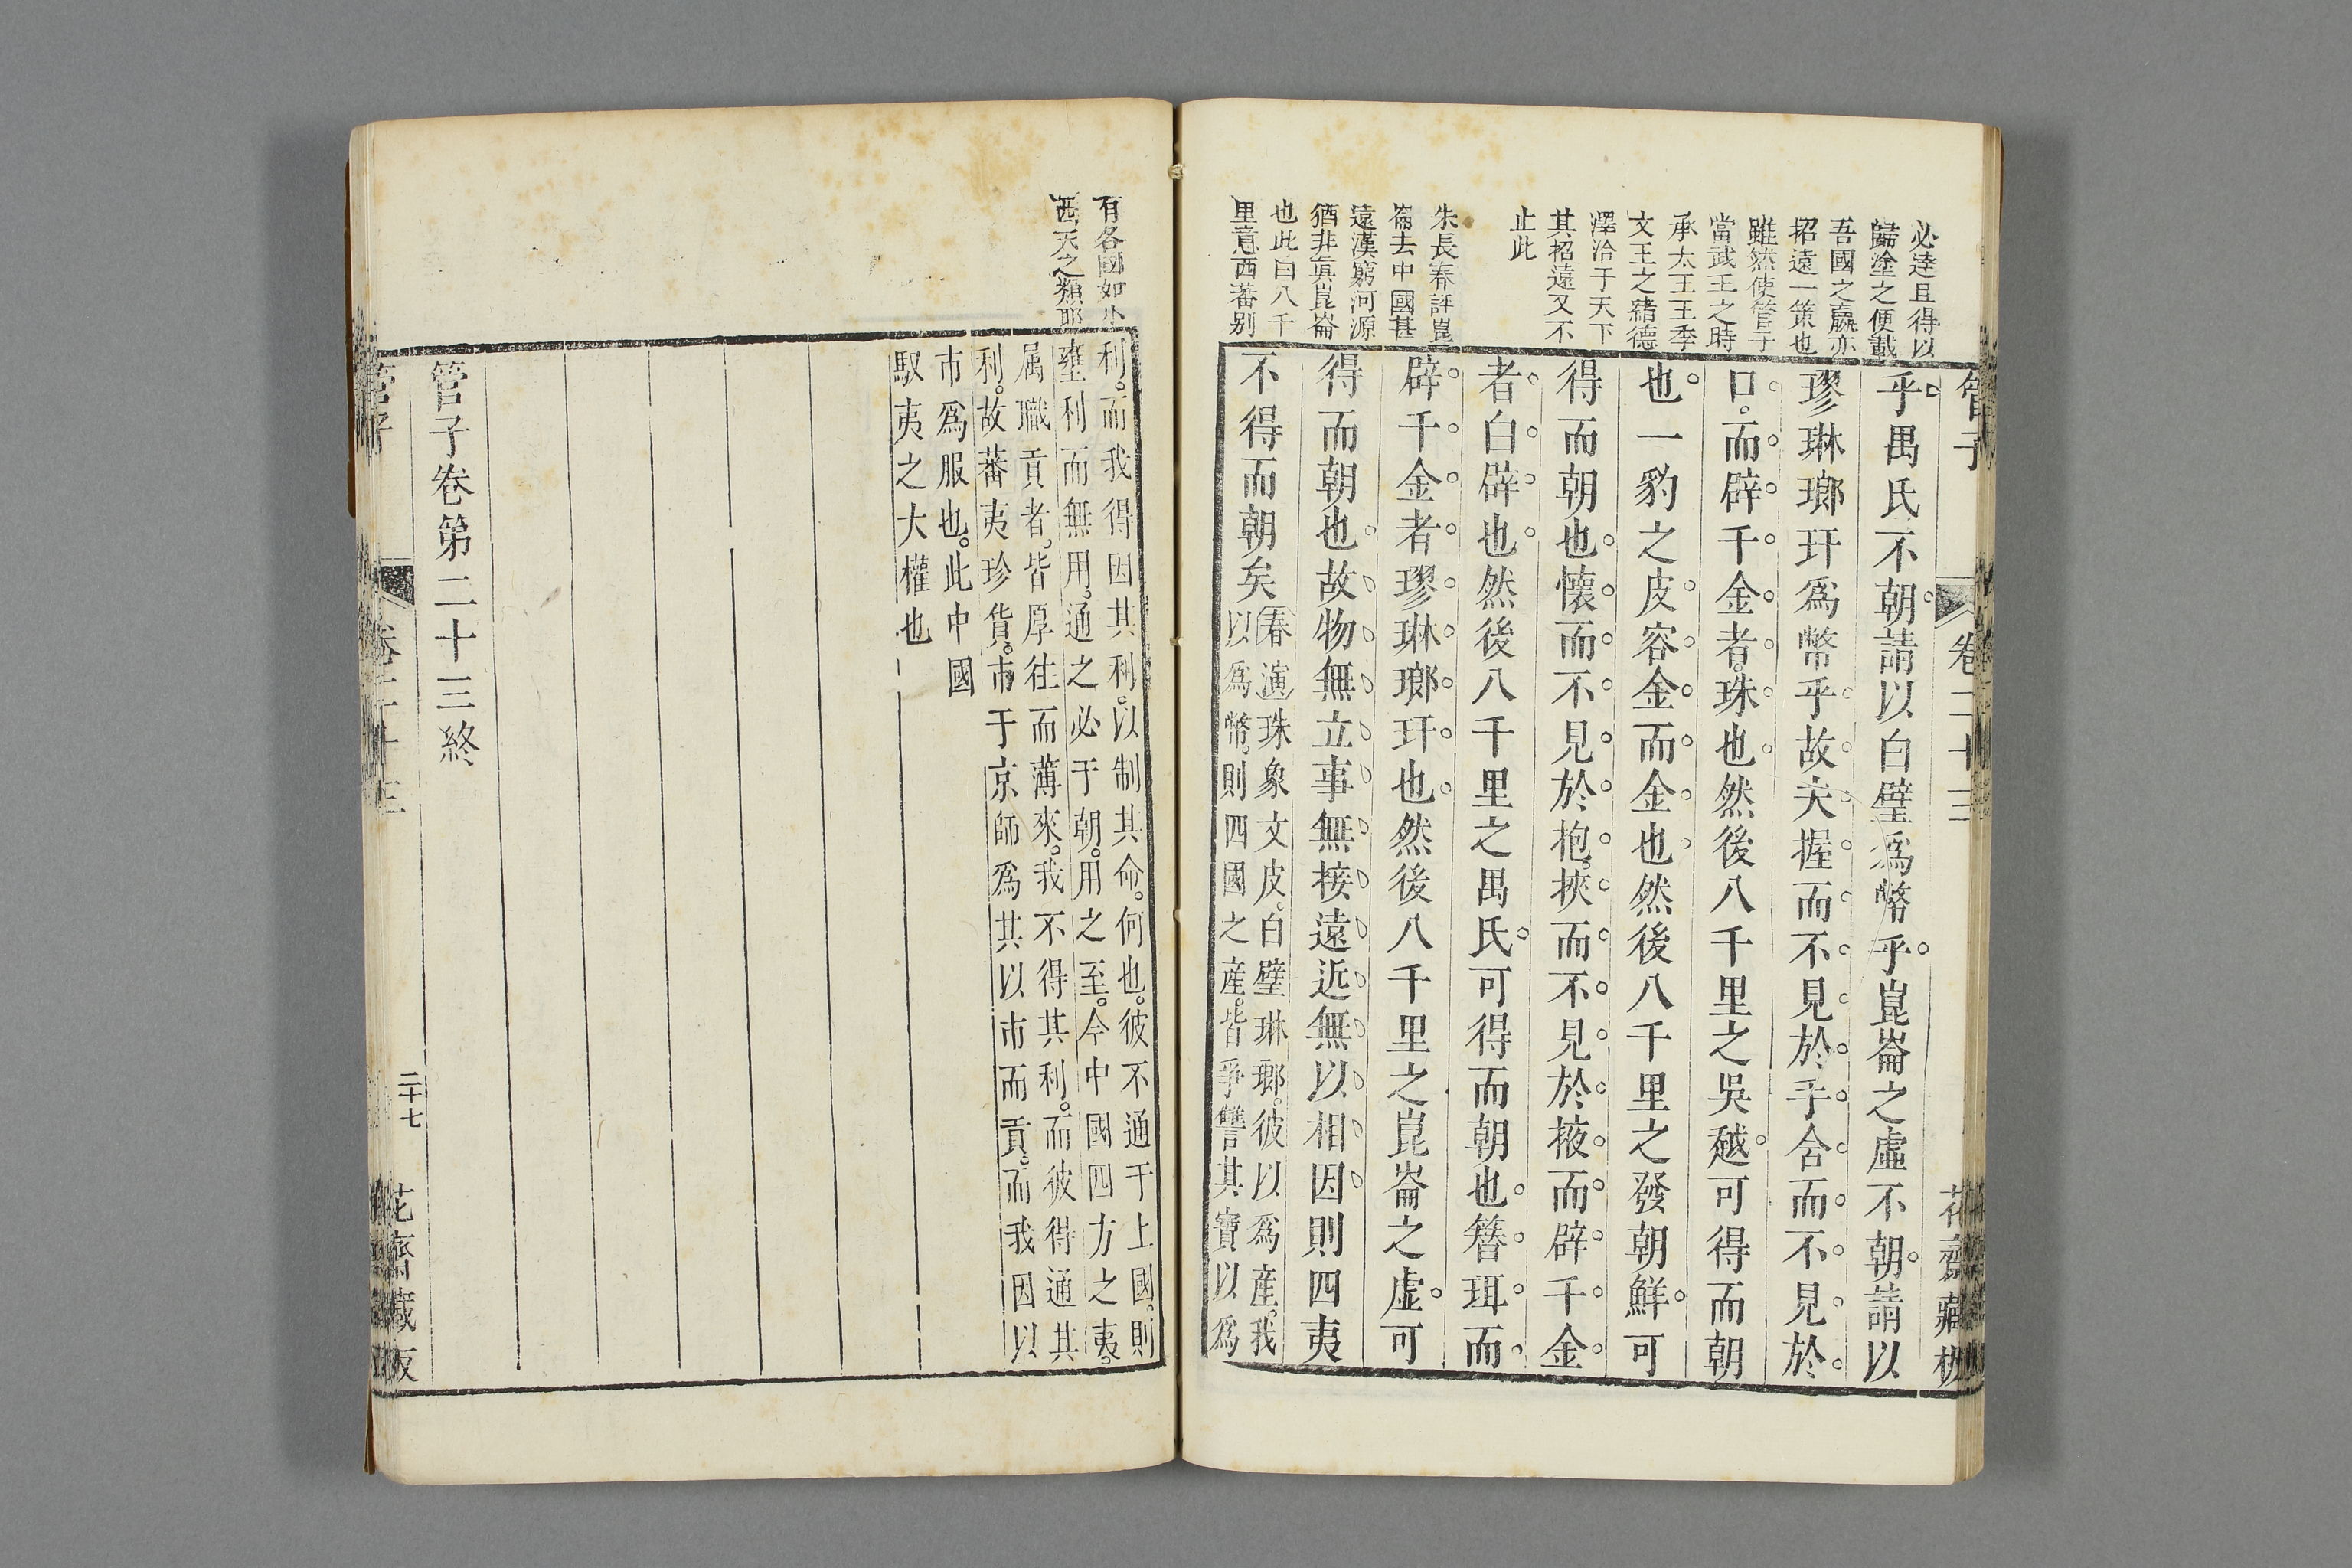 必逹且得以
歸塗之便載
吾國之贏亦
招遠一策也
雖然使管子
當武王之時
承太王王季
文王之緒德
澤洽于天下
其招遠又不
止此
朱長春評崑
崙去中國甚
遠漢窮河源
猶非眞崑崙
也此曰八千
里意西蕃别
管子
卷二十三
花齋藏板
乎禺氏不朝請以白璧爲幣乎崑崙之虛不朝請以
璆琳瑯玕爲幣乎故夫握而不見於手含而不見於
口。而辟千金者。珠也然後八千里之吳越可得而朝
也一豹之皮容金而金也然後八千里之發朝鮮可
得而朝也懷而不見於抱。挾而不見於掖而辟千金
者白辟也然後八千里之禺氏可得而朝也簪珥而
辟千金者璆琳瑯玕也然後八千里之崑崙之虛可
得而朝也故物無立事無接遠近無以相因則四夷
不得而朝矣
春演珠象文皮。白璧琳瑯。彼以爲產。我
以爲幣。則四國之產。皆爭讐其寶以爲
有各國如小
西天之類耶
利。而我得因其利。以制其命。何也。彼不通于上國。則
壅利而無用。通之必于朝。用之至。今中國四方之夷。
属職貢者。皆厚往而薄來。我不得其利。而彼得通其
利。故蕃夷珍貨。市于京師爲其以市而貢。而我因以
市爲服也。此中國
馭夷之大權也
管子卷第二十三終
管子
卷二十三
二十七
花齋藏板